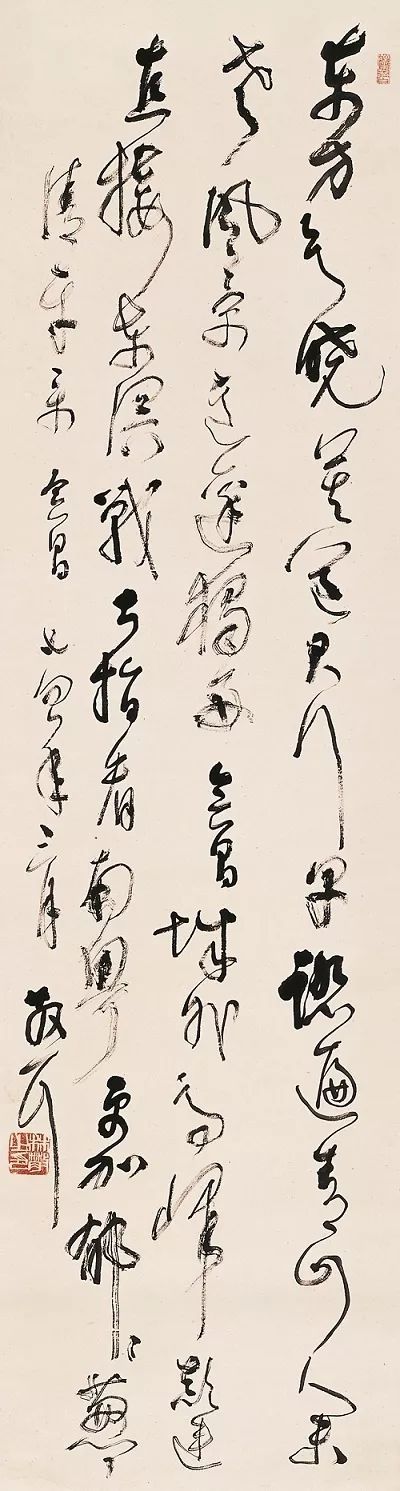 東方欲曉莫道君行早踏遍青山人未
老風景這邊獨好會昌城外高峰顛連
直接東溟戰士指看南粤更加郁〻蔥〻
清平樂會昌 年三月 散耳